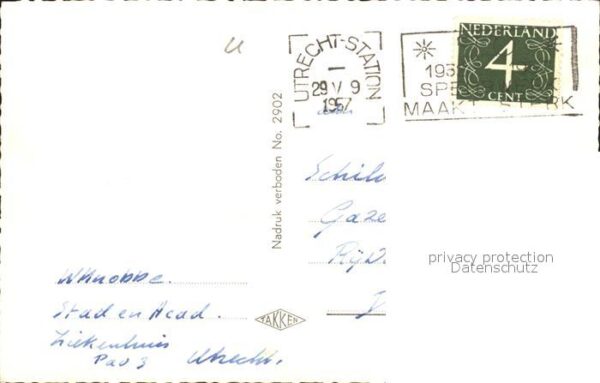 UTRECHT-STATION
29 V 9
1957
NEDERLAND
4
CENT
193
SPE
MAAKT STERK
Nadruk verboden No. 2902
Schil
Gaze
Rijs
privacy protection
Datenschutz
WKnobbe.
Stad en Acad.
Ziekenhuis
Pav 3 Utrecht.
TAKKEN